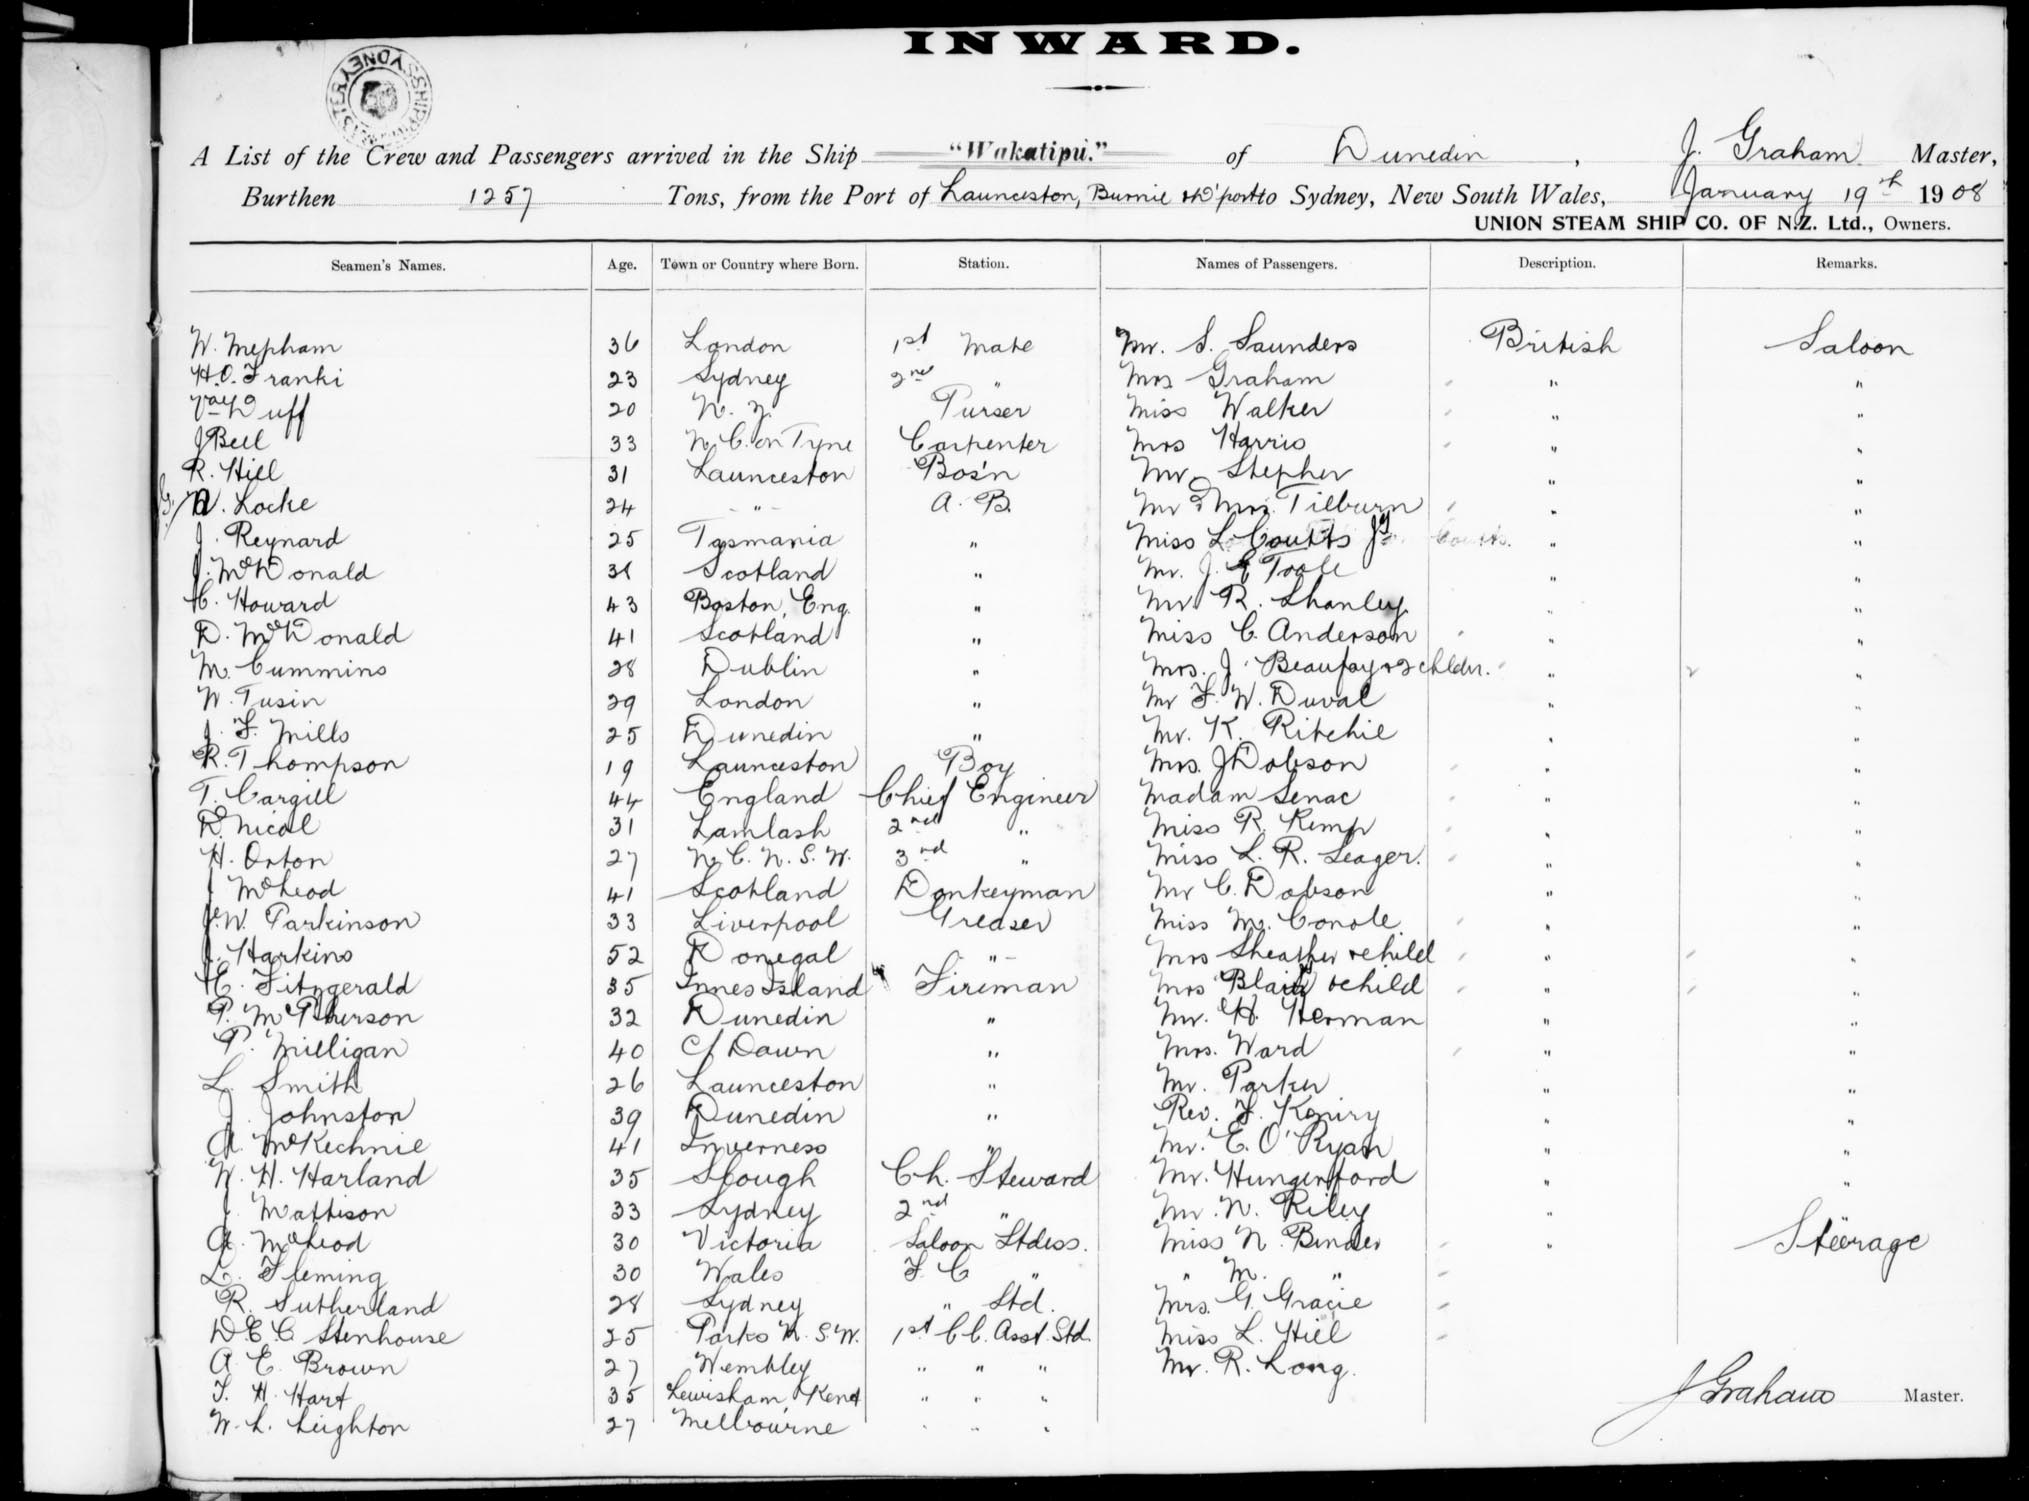 INWARD.
SHIPPING MASTER SYDNEY
A List of the Crew and Passengers arrived in the Ship "Wakatipu." of Dunedin, J. Graham Master,
Burthen 1257 Tons, from the Port of Launceston, Burnie & D'port to Sydney, New South Wales, January 19th 1908
UNION STEAM SHIP CO. OF N.Z. Ltd., Owners.
Seamen's Names. Age. Town or Country where Born. Station. Names of Passengers. Description. Remarks.
W. Mepham 36 London 1st Mate Mr. S. Saunders British Saloon
H.O. Franki 23 Sydney 2nd " Mrs Graham " "
Duff 20 N. Z. Purser Miss Walker " "
J Bell 33 N. C. on Tyne Carpenter Mrs Harris " "
R. Hill 31 Launceston Bos'n Mr Stepher " "
W. Locke 24 " A. B. Mr & Mrs. Tilburn " "
J. Reynard 25 Tasmania " Miss L. Coutts Coutts. " "
J. McDonald 31 Scotland " Mr. J. E Toole " "
C. Howard 43 Boston, Eng. " Mr R. Shanley " "
D. McDonald 41 Scotland " Miss C. Anderson " "
M. Cummins 28 Dublin " Mrs. J. Beaufay & 2 chldn. " 2 "
W. Tusin 29 London " Mr F. W. Duval " "
J. F. Mills 25 Dunedin " Mr. K. Ritchie " "
R. Thompson 19 Launceston Boy Mrs. J Dobson " "
T. Cargill 44 England Chief Engineer Madam Senac " "
D. Nicol 31 Lamlash 2nd " Miss R. Kemp " "
H. Orton 27 N. C. N. S. W. 3rd " Miss L. R. Seager. " "
J McLeod 41 Scotland Donkeyman Mr C. Dobson " "
J. W. Parkinson 33 Liverpool Greaser Miss M. Conole " "
J. Harkins 52 Donegal " Mrs Sheather & child " "
E. Fitzgerald 35 Innes Island Fireman Mrs Blair & child " "
P. McPherson 32 Dunedin " Mr. H. Herman " "
P. Milligan 40 C/ Dawn " Mrs. Ward " "
L. Smith 26 Launceston " Mr. Parker " "
J. Johnston 39 Dunedin " Rev. F. Keniry " "
A. McKechnie 41 Inverness " Mr. E. O'Ryan " "
W. H. Harland 35 Slough Ch. Steward Mr. Hungerford " "
J. Mattison 33 Sydney 2nd " Mr. N. Riley " "
A. McLeod 30 Victoria Saloon Stdess. Miss N. Binder " Steerage
L. Fleming 30 Wales F. C " " M. "
R. Sutherland 28 Sydney " Std. Mrs. G. Gracie
D E. C Stenhouse 25 Parks N. S. W. 1st C C. Asst. Std. Miss L. Hill
A. E. Brown 27 Wembley " " " Mr. R. Long.
T. H. Hart 35 Lewisham, Kent " " "
J Graham Master.
W. L. Leighton 27 Melbourne " " "